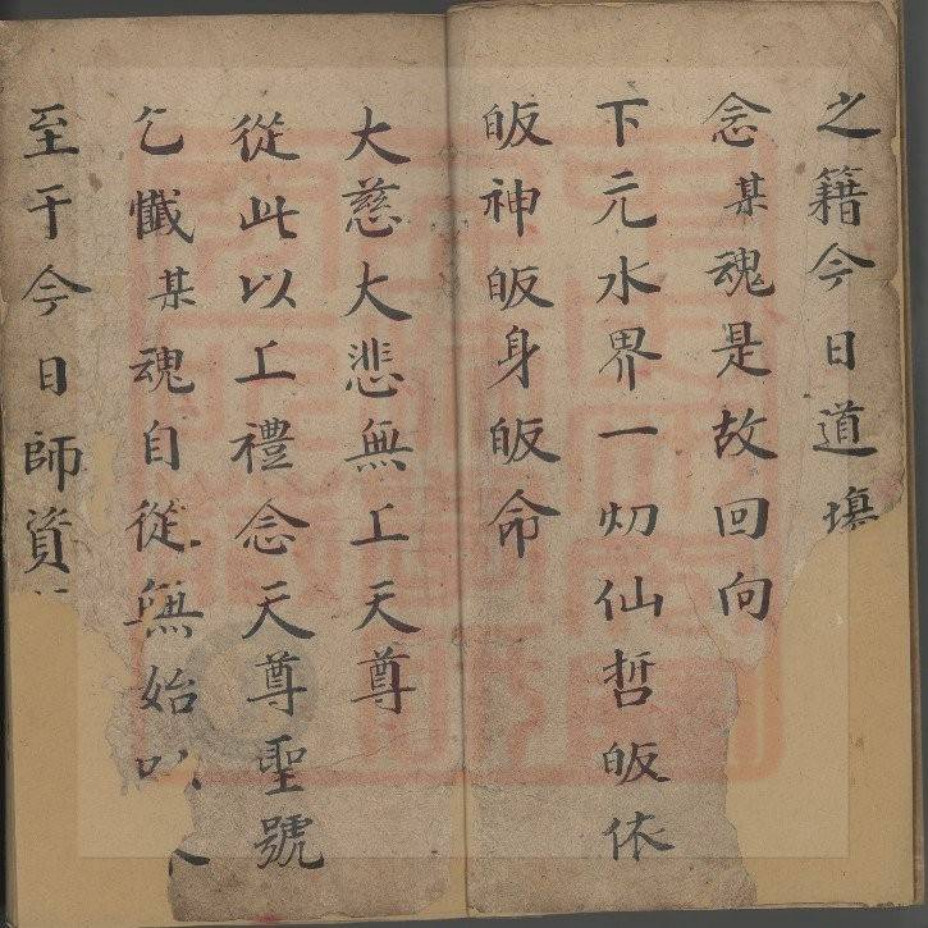 之籍今日道壇
念某魂是故回向
下元水界一切仙哲皈依
皈神皈身皈命
大慈大悲無上天尊
從此以上禮念天尊聖號
乞懺某魂自從無始以
至于今日師資